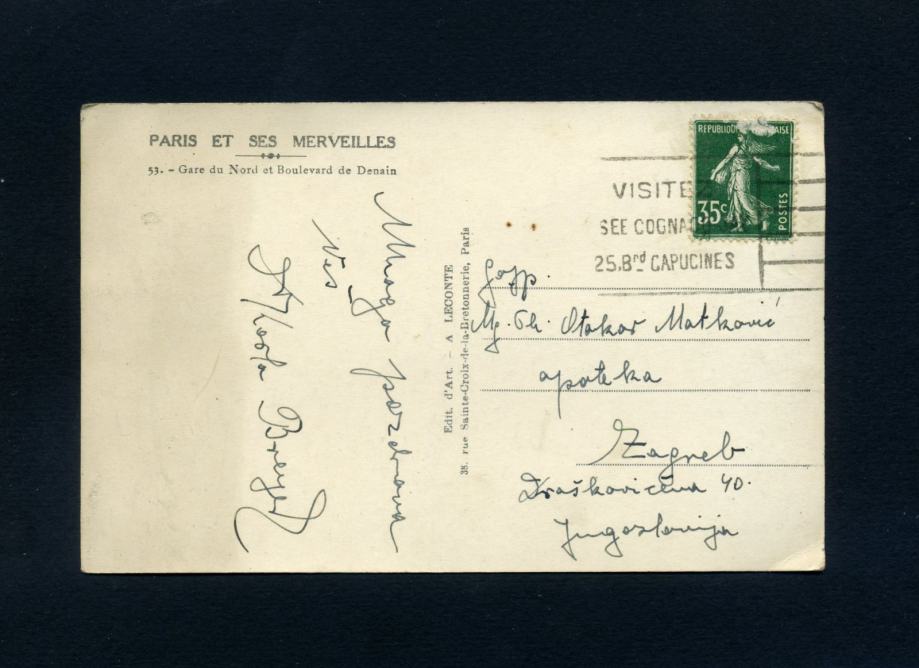 PARIS ET SES MERVEILLES
53. - Gare du Nord et Boulevard de Denain
Mnogo pozdrava
Breyer
Edit. d'Art. - A LECONTE
38, rue Sainte-Croix-de-la-Bretonnerie, Paris
RÉPUBLIQUE
35c
POSTES
VISITEZ
SEE COGNA
25, Brd CAPUCINES
Gosp.
Mg. Ph. Otokar Matković
apoteka
Zagreb
Draškovićeva 40.
Jugoslavija